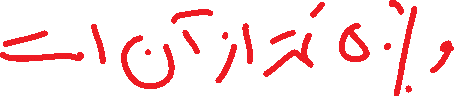 و ۵۰٪ کمتر از آن است